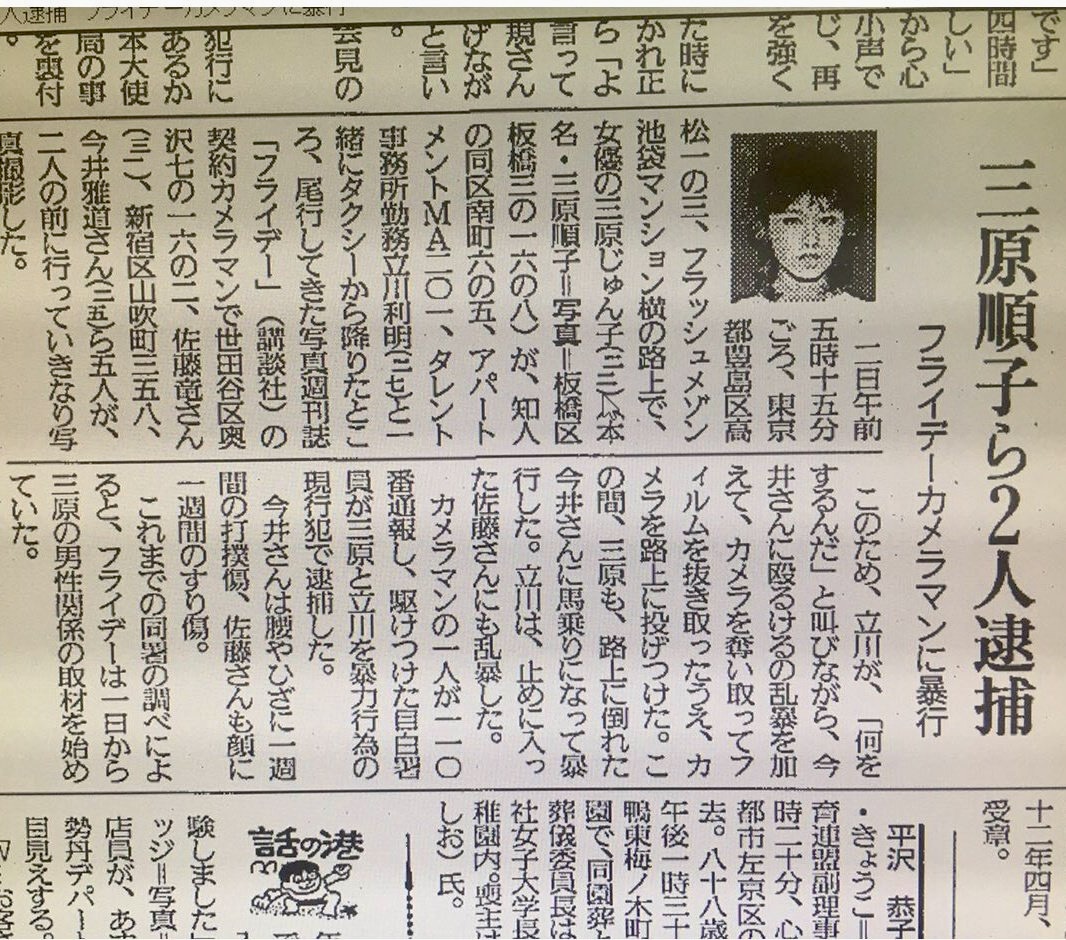 人逮捕 フライデーカメラマンに暴行
です」
四時間
しい」
から心
小声で
じ、再
を強く
た時に
かれ正
ら「よ
言って
規さん
げなが
と言い
。
会見の
犯行に
あるか
本大使
局の事
を裏付
。
三原順子ら2人逮捕
フライデーカメラマンに暴行
二日午前
五時十五分
ごろ、東京
都豊島区高
松一の三、フラッシュメゾン
池袋マンション横の路上で、
女優の三原じゅん子(二三)(本
名・三原順子＝写真＝板橋区
板橋三の一六の八)が、知人
の同区南町六の五、アパート
メントＭＡ二〇一、タレント
事務所勤務立川利明(二七)と一
緒にタクシーから降りたとこ
ろ、尾行してきた写真週刊誌
「フライデー」(講談社)の
契約カメラマンで世田谷区奥
沢七の一六の二、佐藤竜さん
(三一)、新宿区山吹町三五八、
今井雅道さん(二五)ら五人が、
二人の前に行っていきなり写
真撮影した。
このため、立川が、「何を
するんだ」と叫びながら、今
井さんに殴るけるの乱暴を加
えて、カメラを奪い取ってフ
ィルムを抜き取ったうえ、カ
メラを路上に投げつけた。こ
の間、三原も、路上に倒れた
今井さんに馬乗りになって暴
行した。立川は、止めに入っ
た佐藤さんにも乱暴した。
カメラマンの一人が一一〇
番通報し、駆けつけた目白署
員が三原と立川を暴力行為の
現行犯で逮捕した。
今井さんは腰やひざに一週
間の打撲傷、佐藤さんも顔に
一週間のすり傷。
これまでの同署の調べによ
ると、フライデーは一日から
三原の男性関係の取材を始め
ていた。
十二年四月、
受章。
平沢 恭子
・きょうこ＝
育連盟副理事
時二十分、心
都市左京区の
去。八十八歳
午後一時三十
鴨東梅ノ木町
園で、同園葬と
葬儀委員長は
社女子大学長
稚園内。喪主は
しお)氏。
話の港
験しました」
ッジ＝写真＝
店員が、あ
勢丹デパート
目見えする。